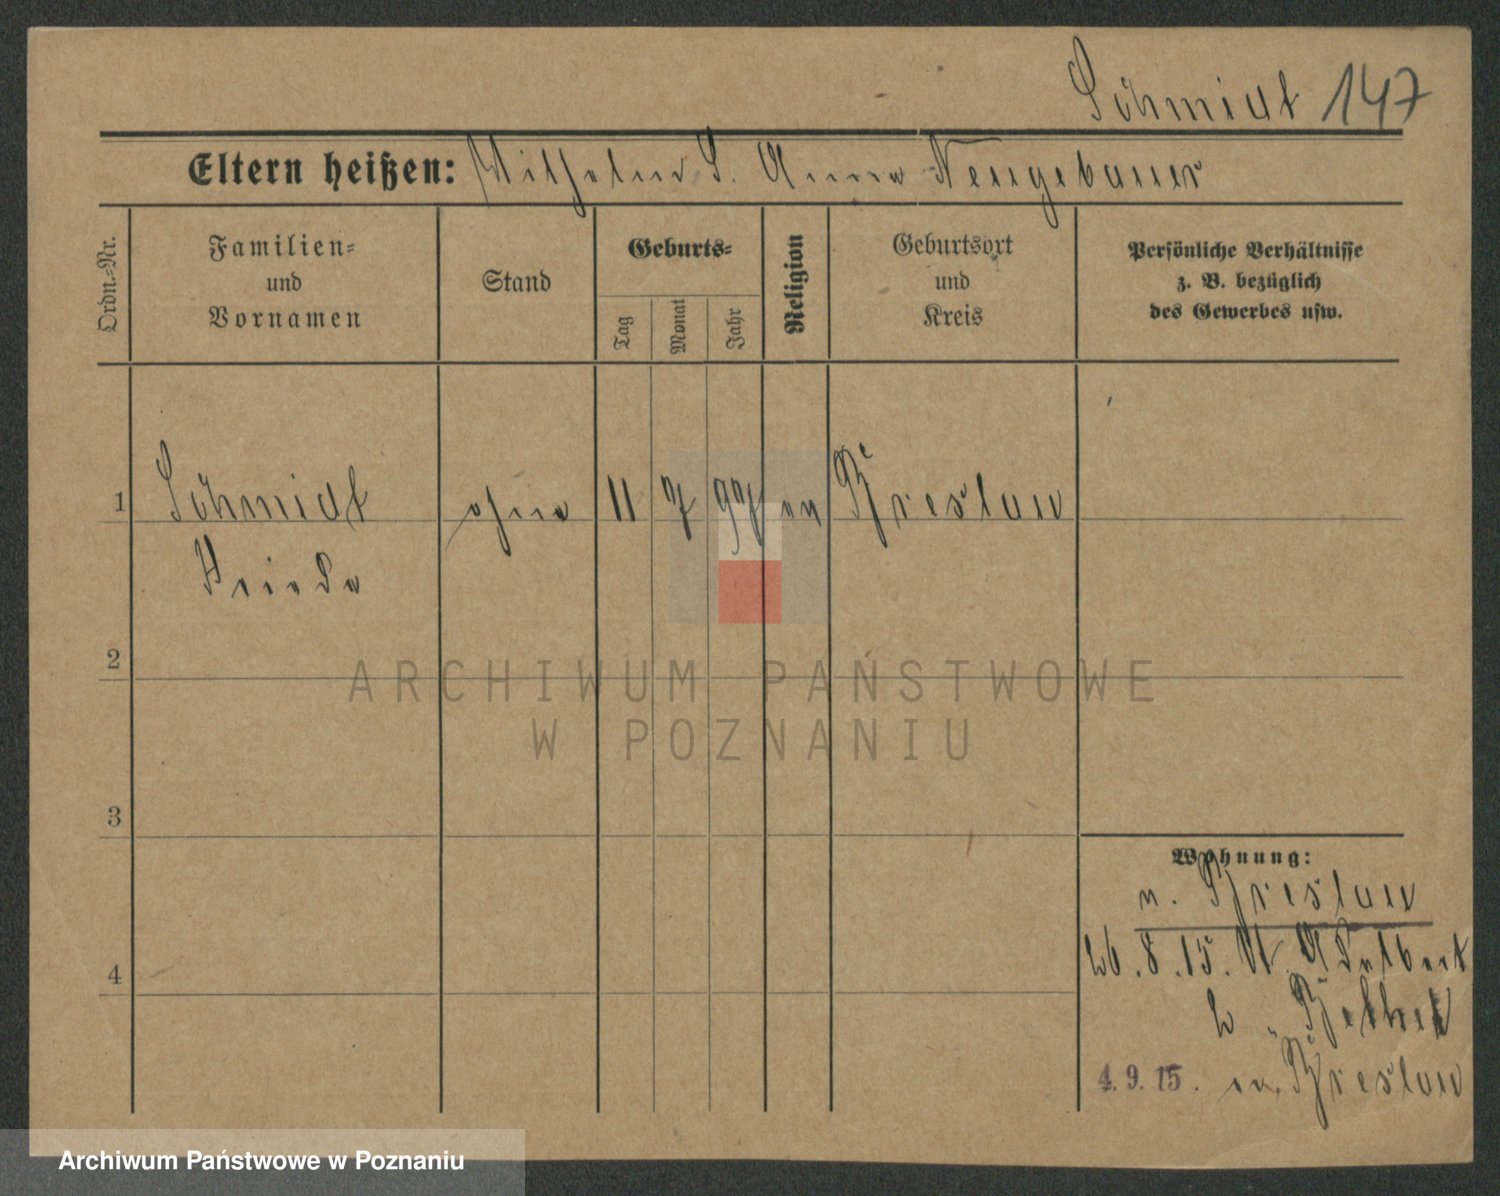 Schmidt 147
Eltern heißen: Wilhelm S. Anna Neugebauer
Ordn.-Nr.
Familien-
und
Vornamen
Stand
Geburts-
Tag
Monat
Jahr
Religion
Geburtsort
und
Kreis
Persönliche Verhältnisse
z. B. bezüglich
des Gewerbes usw.
1 Schmidt ohne 11 7 97 ev Breslau
Frieda
2
3
4
Wohnung:
n. Breslau
26.8.15. St. Adalbert
2 " Bethel
4.9.15. n. Breslau
ARCHIWUM PAŃSTWOWE
W POZNANIU
Archiwum Państwowe w Poznaniu